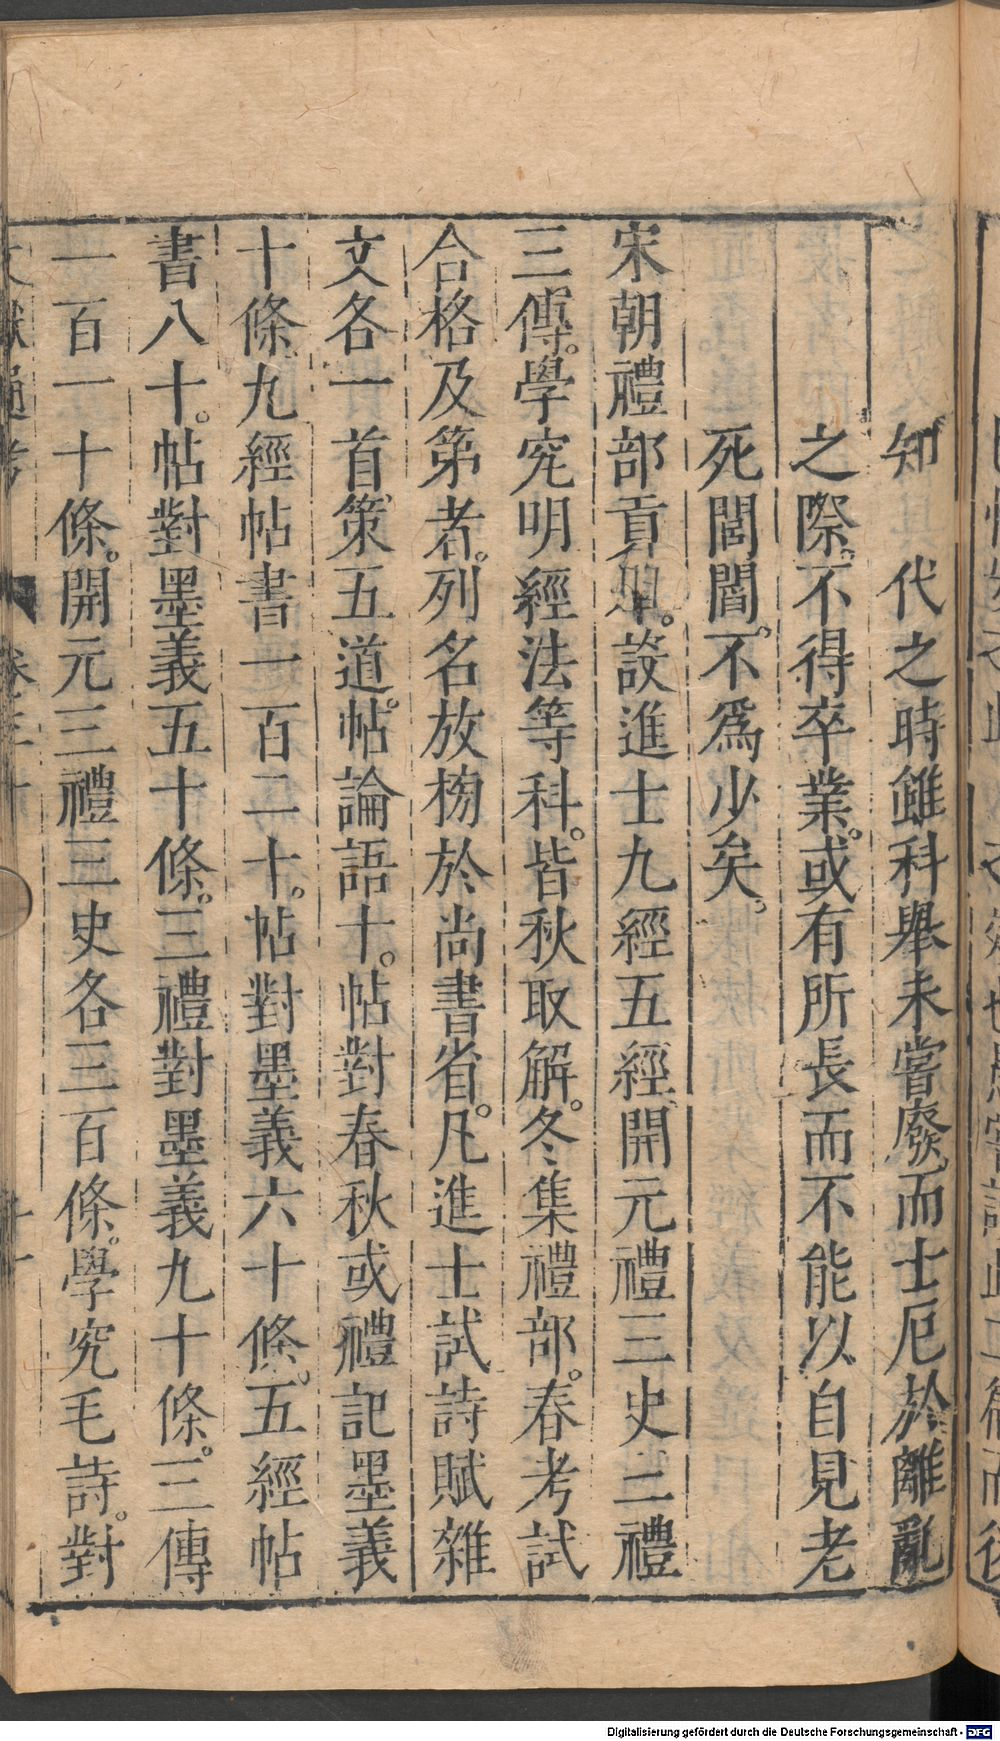 知 代之時雖科舉未嘗廢而士厄於離亂
之際。不得卒業。或有所長而不能以自見老
死閭閻。不爲少矣。
宋朝禮部貢舉。設進士九經五經開元禮三史三禮
三傳。學究明經法等科。皆秋取解。冬集禮部。春考試
合格及第者。列名放榜於尚書省。凡進士試詩賦雜
文各一首策五道。帖論語十。帖對春秋或禮記墨義
十條九經帖書一百二十。帖對墨義六十條。五經帖
書八十。帖對墨義五十條。三禮對墨義九十條。三傳
一百一十條。開元三禮三史各三百條。學究毛詩。對
文獻通考 卷三十
Digitalisierung gefördert durch die Deutsche Forschungsgemeinschaft - DFG